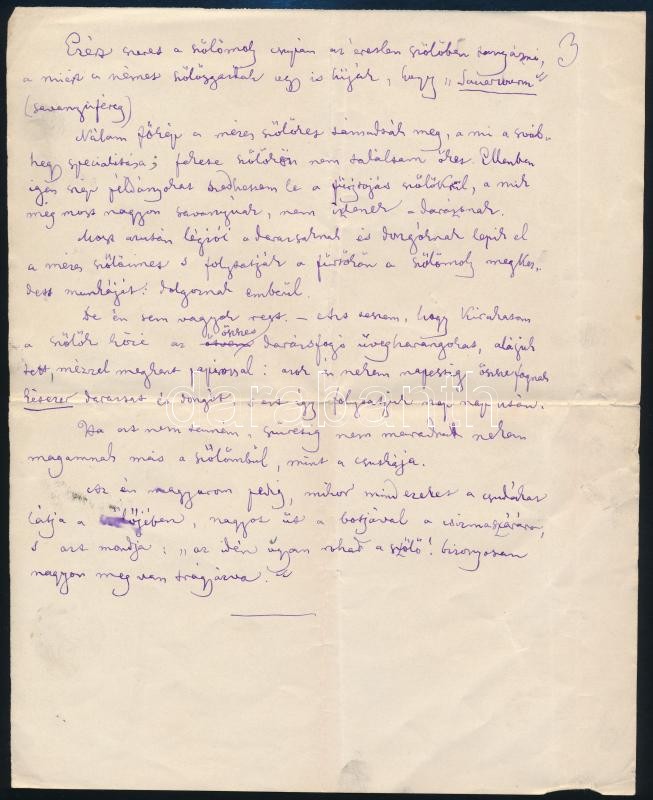 3
Ezért szeret a szőlőmoly csupán az éretlen szőlőben tanyázni,
a miért a német szőlősgazdák úgy is hívják, hogy „Sauerwurm"
(savanyúféreg)
Nálam főkép a mézes szőlőket támadták meg, a mi a sváb-
hegy specialitása; fekete szőlőkön nem találtam őket. Ellenben
igen szép példányokat szedhetem le a fürtojás szőlőkről, a mik
még most nagyon savanyúak, nem ízlenek a darázsnak.
Most azután légiói a darazsaknak és dongóknak lepik el
a mézes szőlőimet s folytatják a fürtökön a szőlőmoly megkez-
dett munkáját: dolgoznak emberül.
De én sem vagyok rest. – Azt teszem, hogy kirakatom
a szőlők közé az összes
darázsfogó üvegharangokat, alájuk
tett, mézzel megkent papirossal: azok nekem napestig összefognak
kétezer darazsat és dongót s ezt így folytatjuk nap nap után.
Ha azt nem tenném, szüretig nem maradna nekem
magamnak más a szőlőmbül, mint a csutkája.
Az én magyarom pedig, mikor mind ezeket a csudákat
látja a szőlőjében, nagyot üt a botjával a csizmaszárára,
s azt mondja: „az idén ugyan rohad a szőlő! bizonyosan
nagyon meg van trágyázva."
darabanth